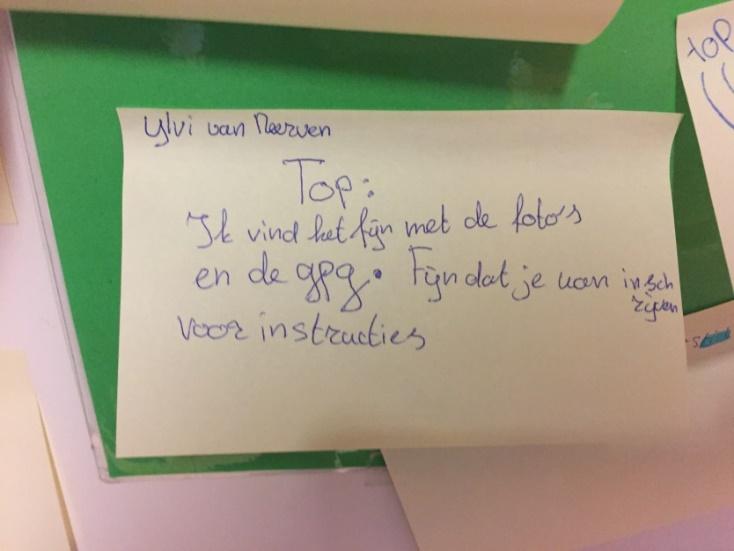 Ylvi van Meerven
Top:
Ik vind het fijn met de foto's
en de gpg. Fijn dat je kan insch
rijven
voor instructies
top